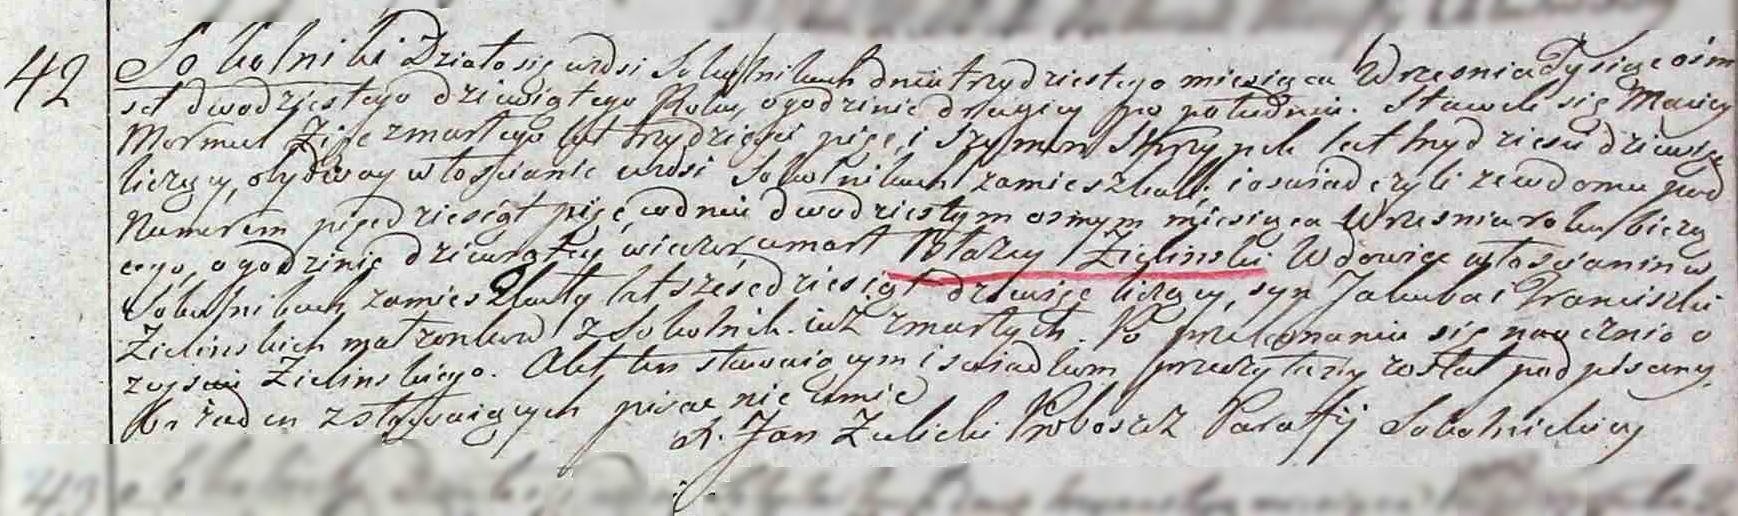 42
Sokolniki Działo się wdsi Sokolnikach dnia trzydziestego miesiąca Wrzesnia Tysiąc ośm
set dwudziestego dziewiątego Roku, o godzinie drugiey po południu. Stawili się Maciey
Mormul Zięc zmarłego lat trzydzieści pięć, i Szymon Skrzypek lat trzydzieści dziewięć
liczący, obydway włościanie wdsi Sokolnikach zamieszkali; i oswiadczyli ze wdomu pod
Numerem pięcdziesiąt pięc, wdniu dwudziestym osmym miesiąca Wrzesnia roku bieżą
cego, o godzinie dziewiątey wieczor, umarł Błażey Zielinski Wdowiec włoscianin w
Sokolnikach zamieszkały lat sześcdziesiąt dziewięc liczący, syn Jakuba i Franciszki
Zielinskich małzonkow z Sokolnik iuż zmarłych. Po przekonaniu się naocznie o
zejsciu Zielinskiego. Akt ten stawaiącym i swiadkom przeczytany został podpisany,
bo żaden z stawaiących pisać nie umie
X. Jan Zulicki Proboszcz Parafij Sokolnickiey